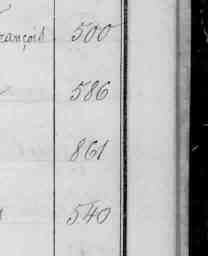 rançois 500
586
861
540